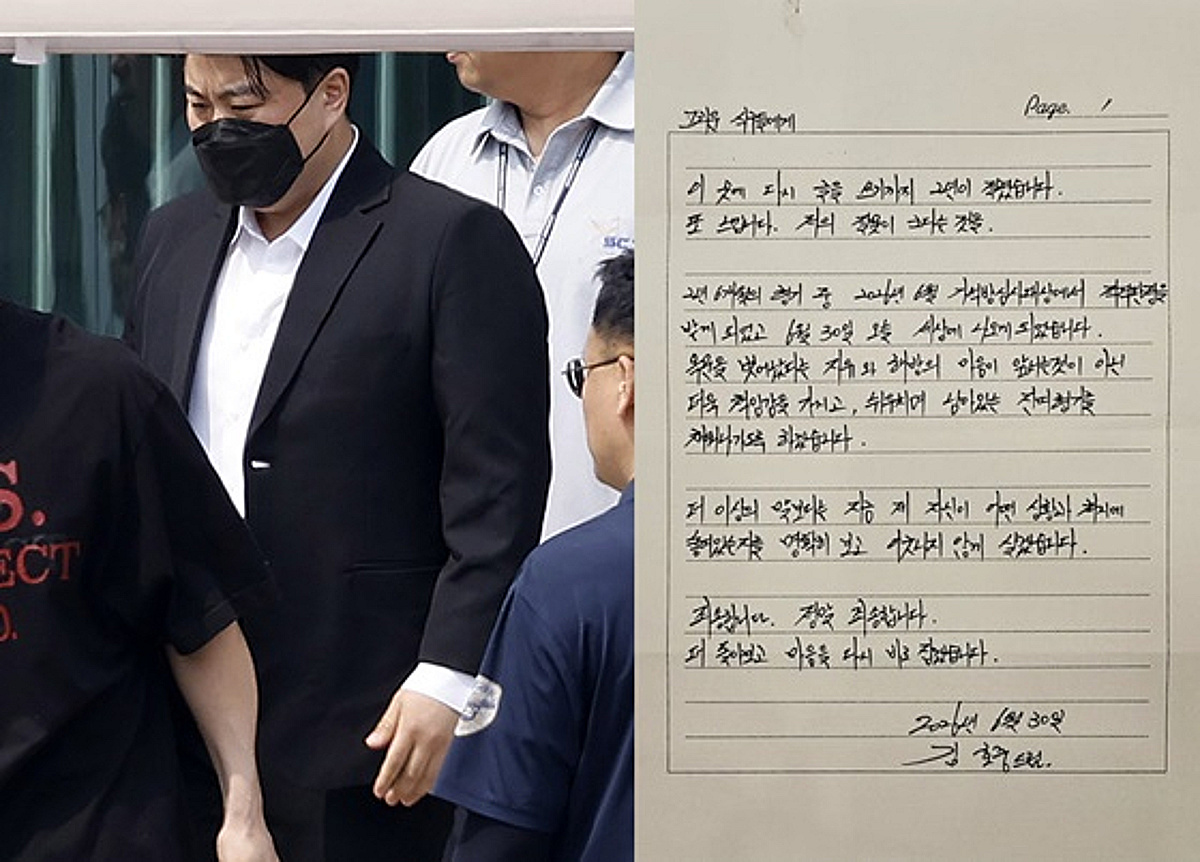 S.
ECT
D.
SC
그리운 식구들에게
Page. 1
이 곳에 다시 글을 쓰기까지 2년이 걸렸습니다.
또 느낍니다. 저의 잘못이 크다는 것을.
2년 6개월의 형기 중 2026년 6월 가석방심사대상에서 적격판정을
받게 되었고 6월 30일 오늘 세상에 나오게 되었습니다.
옥문을 벗어났다는 자유와 해방의 마음이 앞서는것이 아닌
더욱 책임감을 가지고, 뉘우치며 남아있는 잔여형기를
채워나가도록 하겠습니다.
더 이상의 약보다는 지금 제 자신이 어떤 상황과 처지에
놓여있는지를 명확히 보고 어긋나지 않게 살겠습니다.
죄송합니다. 정말 죄송합니다.
더 돌아보고 마음을 다시 바로 잡겠습니다.
2026년 6월 30일
김호중 드림.